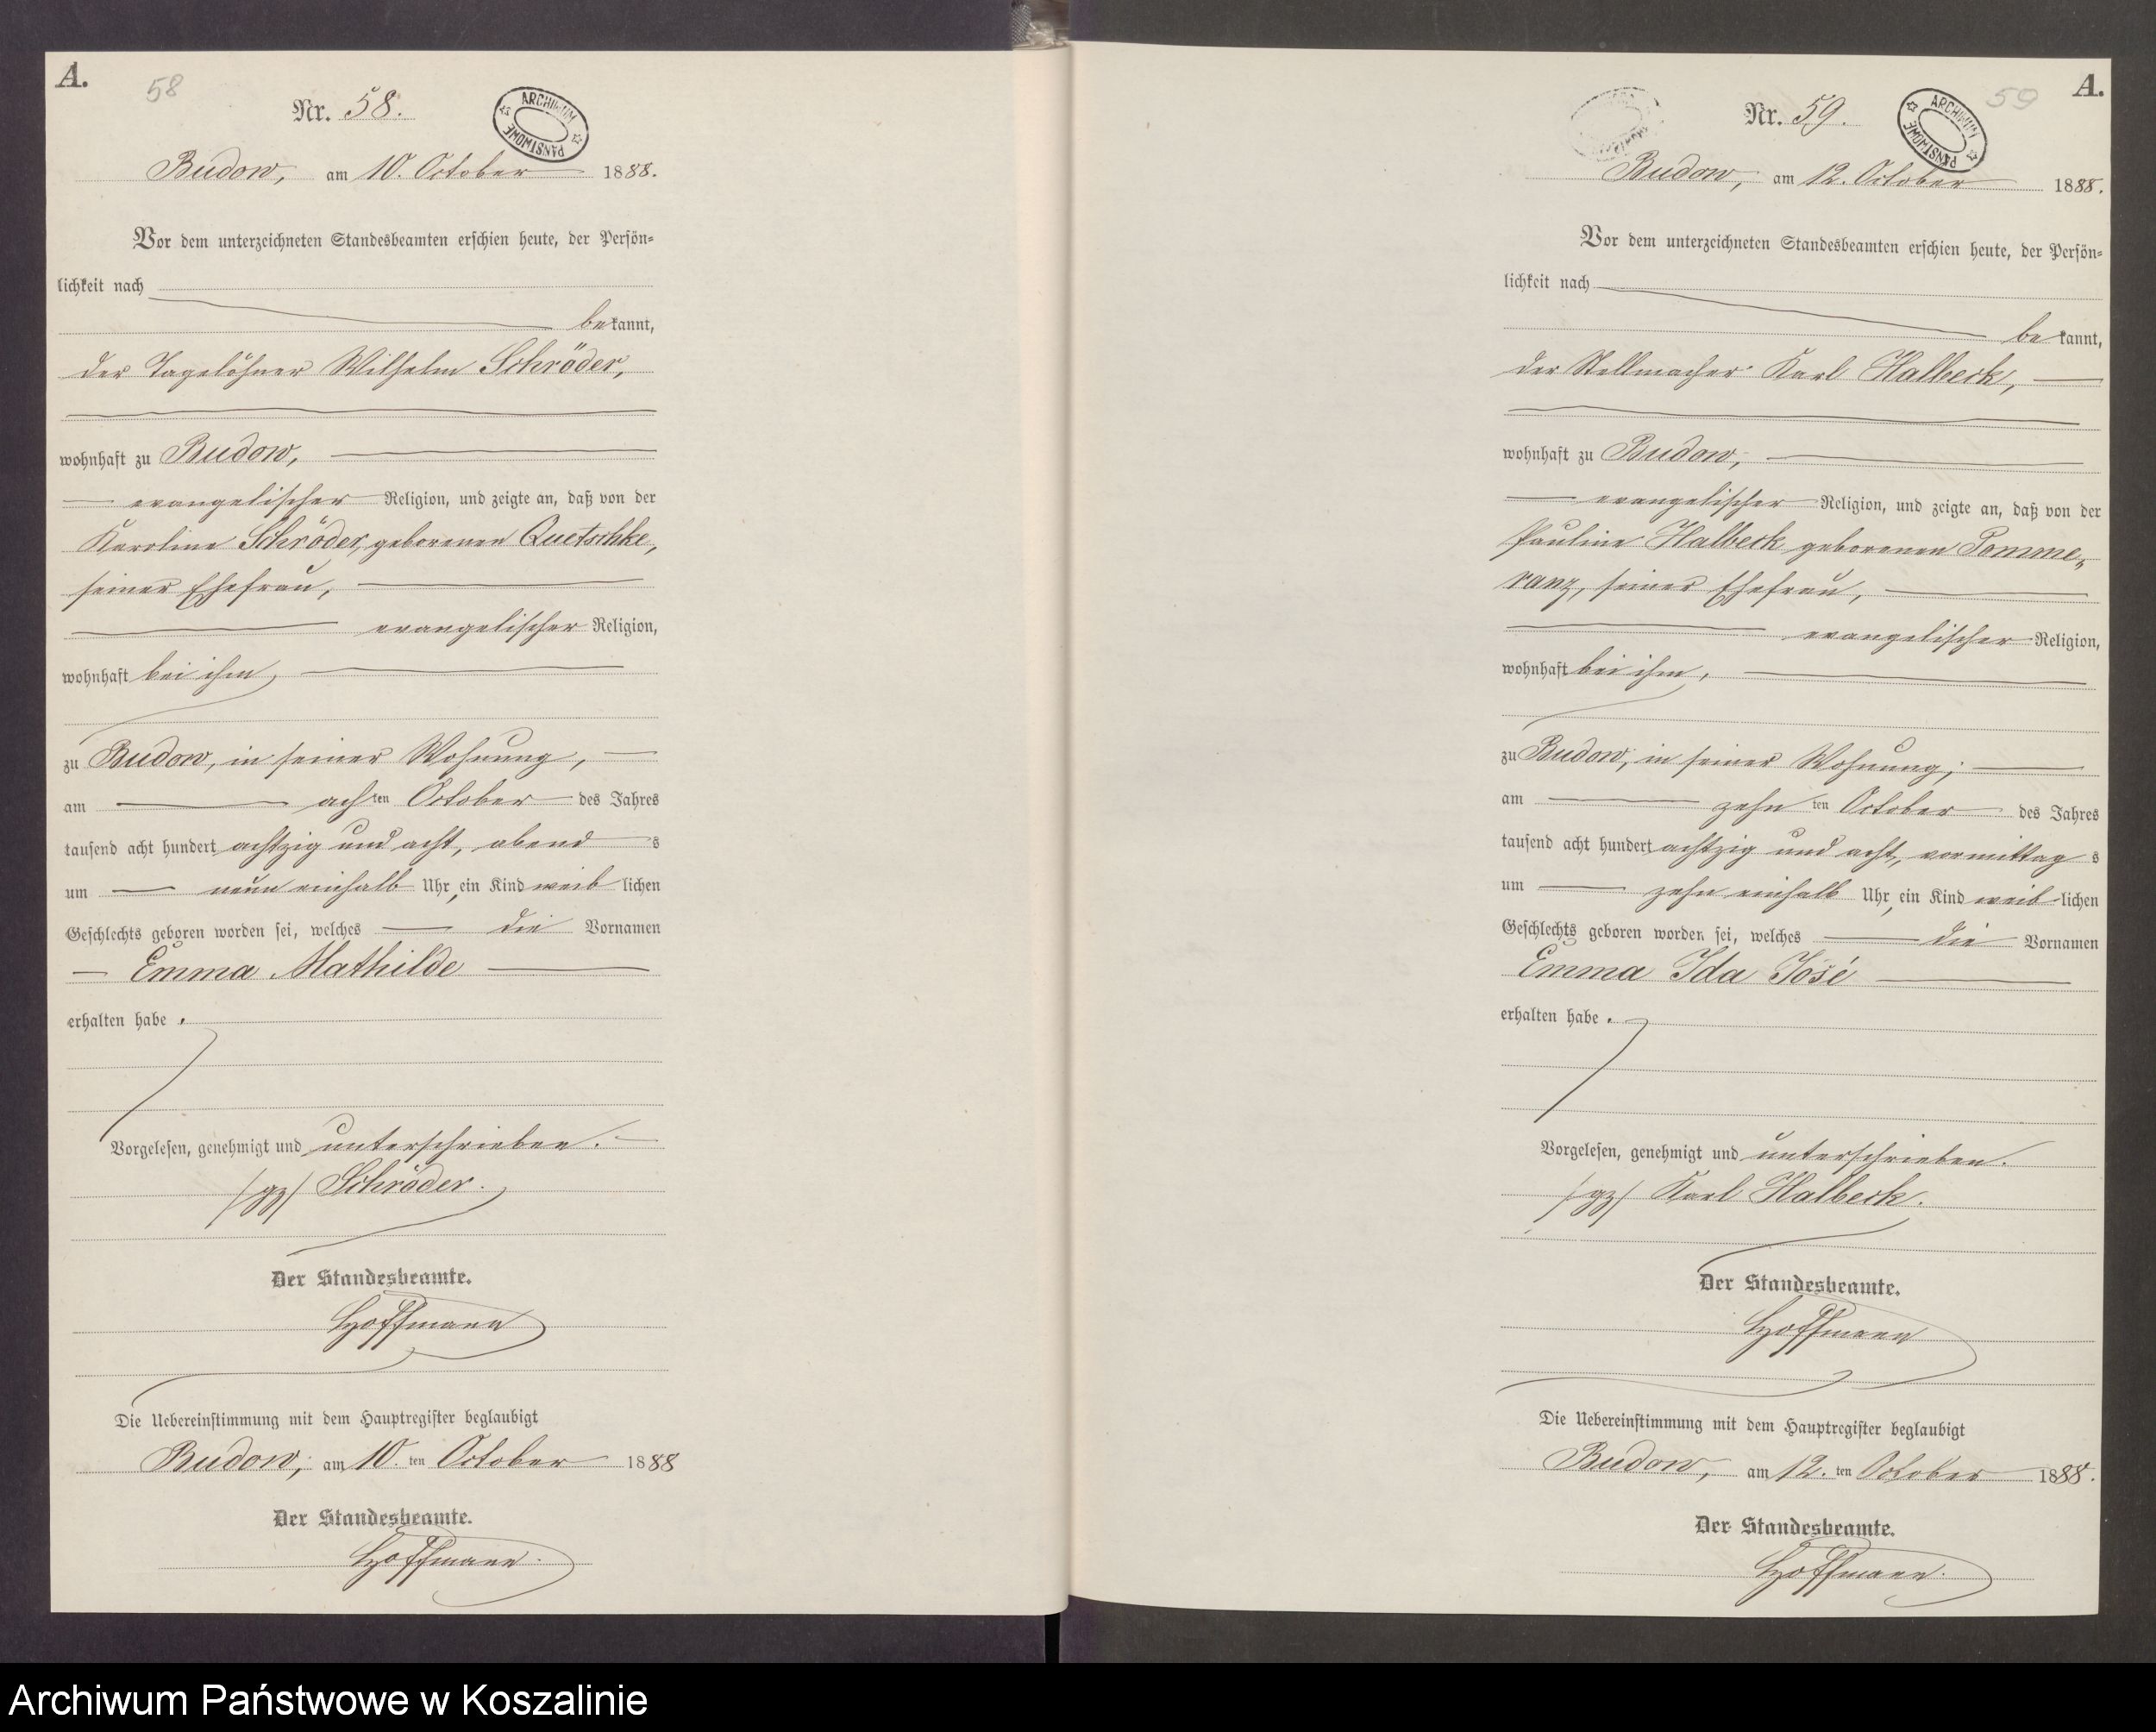 A.
58
Nr. 58.
ARCHIWUM PAŃSTWOWE
Budow, am 10. October 1888.
Vor dem unterzeichneten Standesbeamten erschien heute, der Persön=
lichkeit nach
bekannt,
der Tagelöhner Wilhelm Schröder,
wohnhaft zu Budow,
evangelischer Religion, und zeigte an, daß von der
Karoline Schröder, geborenen Quetschke,
seiner Ehefrau,
evangelischer Religion,
wohnhaft bei ihm,
zu Budow, in seiner Wohnung,
am achten October des Jahres
tausend acht hundert achtzig und acht, abends
um neun einhalb Uhr, ein Kind weiblichen
Geschlechts geboren worden sei, welches die Vornamen
Emma Mathilde
erhalten habe.
Vorgelesen, genehmigt und unterschrieben.
/gz/ Schröder.
Der Standesbeamte.
Hoffmann
Die Uebereinstimmung mit dem Hauptregister beglaubigt
Budow, am 10. ten October 1888
Der Standesbeamte.
Hoffmann.
A.
59
Nr. 59.
ARCHIWUM PAŃSTWOWE
Budow, am 12. October 1888.
Vor dem unterzeichneten Standesbeamten erschien heute, der Persön=
lichkeit nach
bekannt,
der Stellmacher Karl Halbeck,
wohnhaft zu Budow,
evangelischer Religion, und zeigte an, daß von der
Pauline Halbeck geborenen Pomme„
ranz, seiner Ehefrau,
evangelischer Religion,
wohnhaft bei ihm,
zu Budow, in seiner Wohnung,
am zehnten October des Jahres
tausend acht hundert achtzig und acht, vormittags
um zehn einhalb Uhr, ein Kind weiblichen
Geschlechts geboren worden sei, welches die Vornamen
Emma Ida José
erhalten habe.
Vorgelesen, genehmigt und unterschrieben.
/gz/ Karl Halbeck.
Der Standesbeamte.
Hoffmann
Die Uebereinstimmung mit dem Hauptregister beglaubigt
Budow, am 12. ten October 1888.
Der Standesbeamte.
Hoffmann.
Archiwum Państwowe w Koszalinie